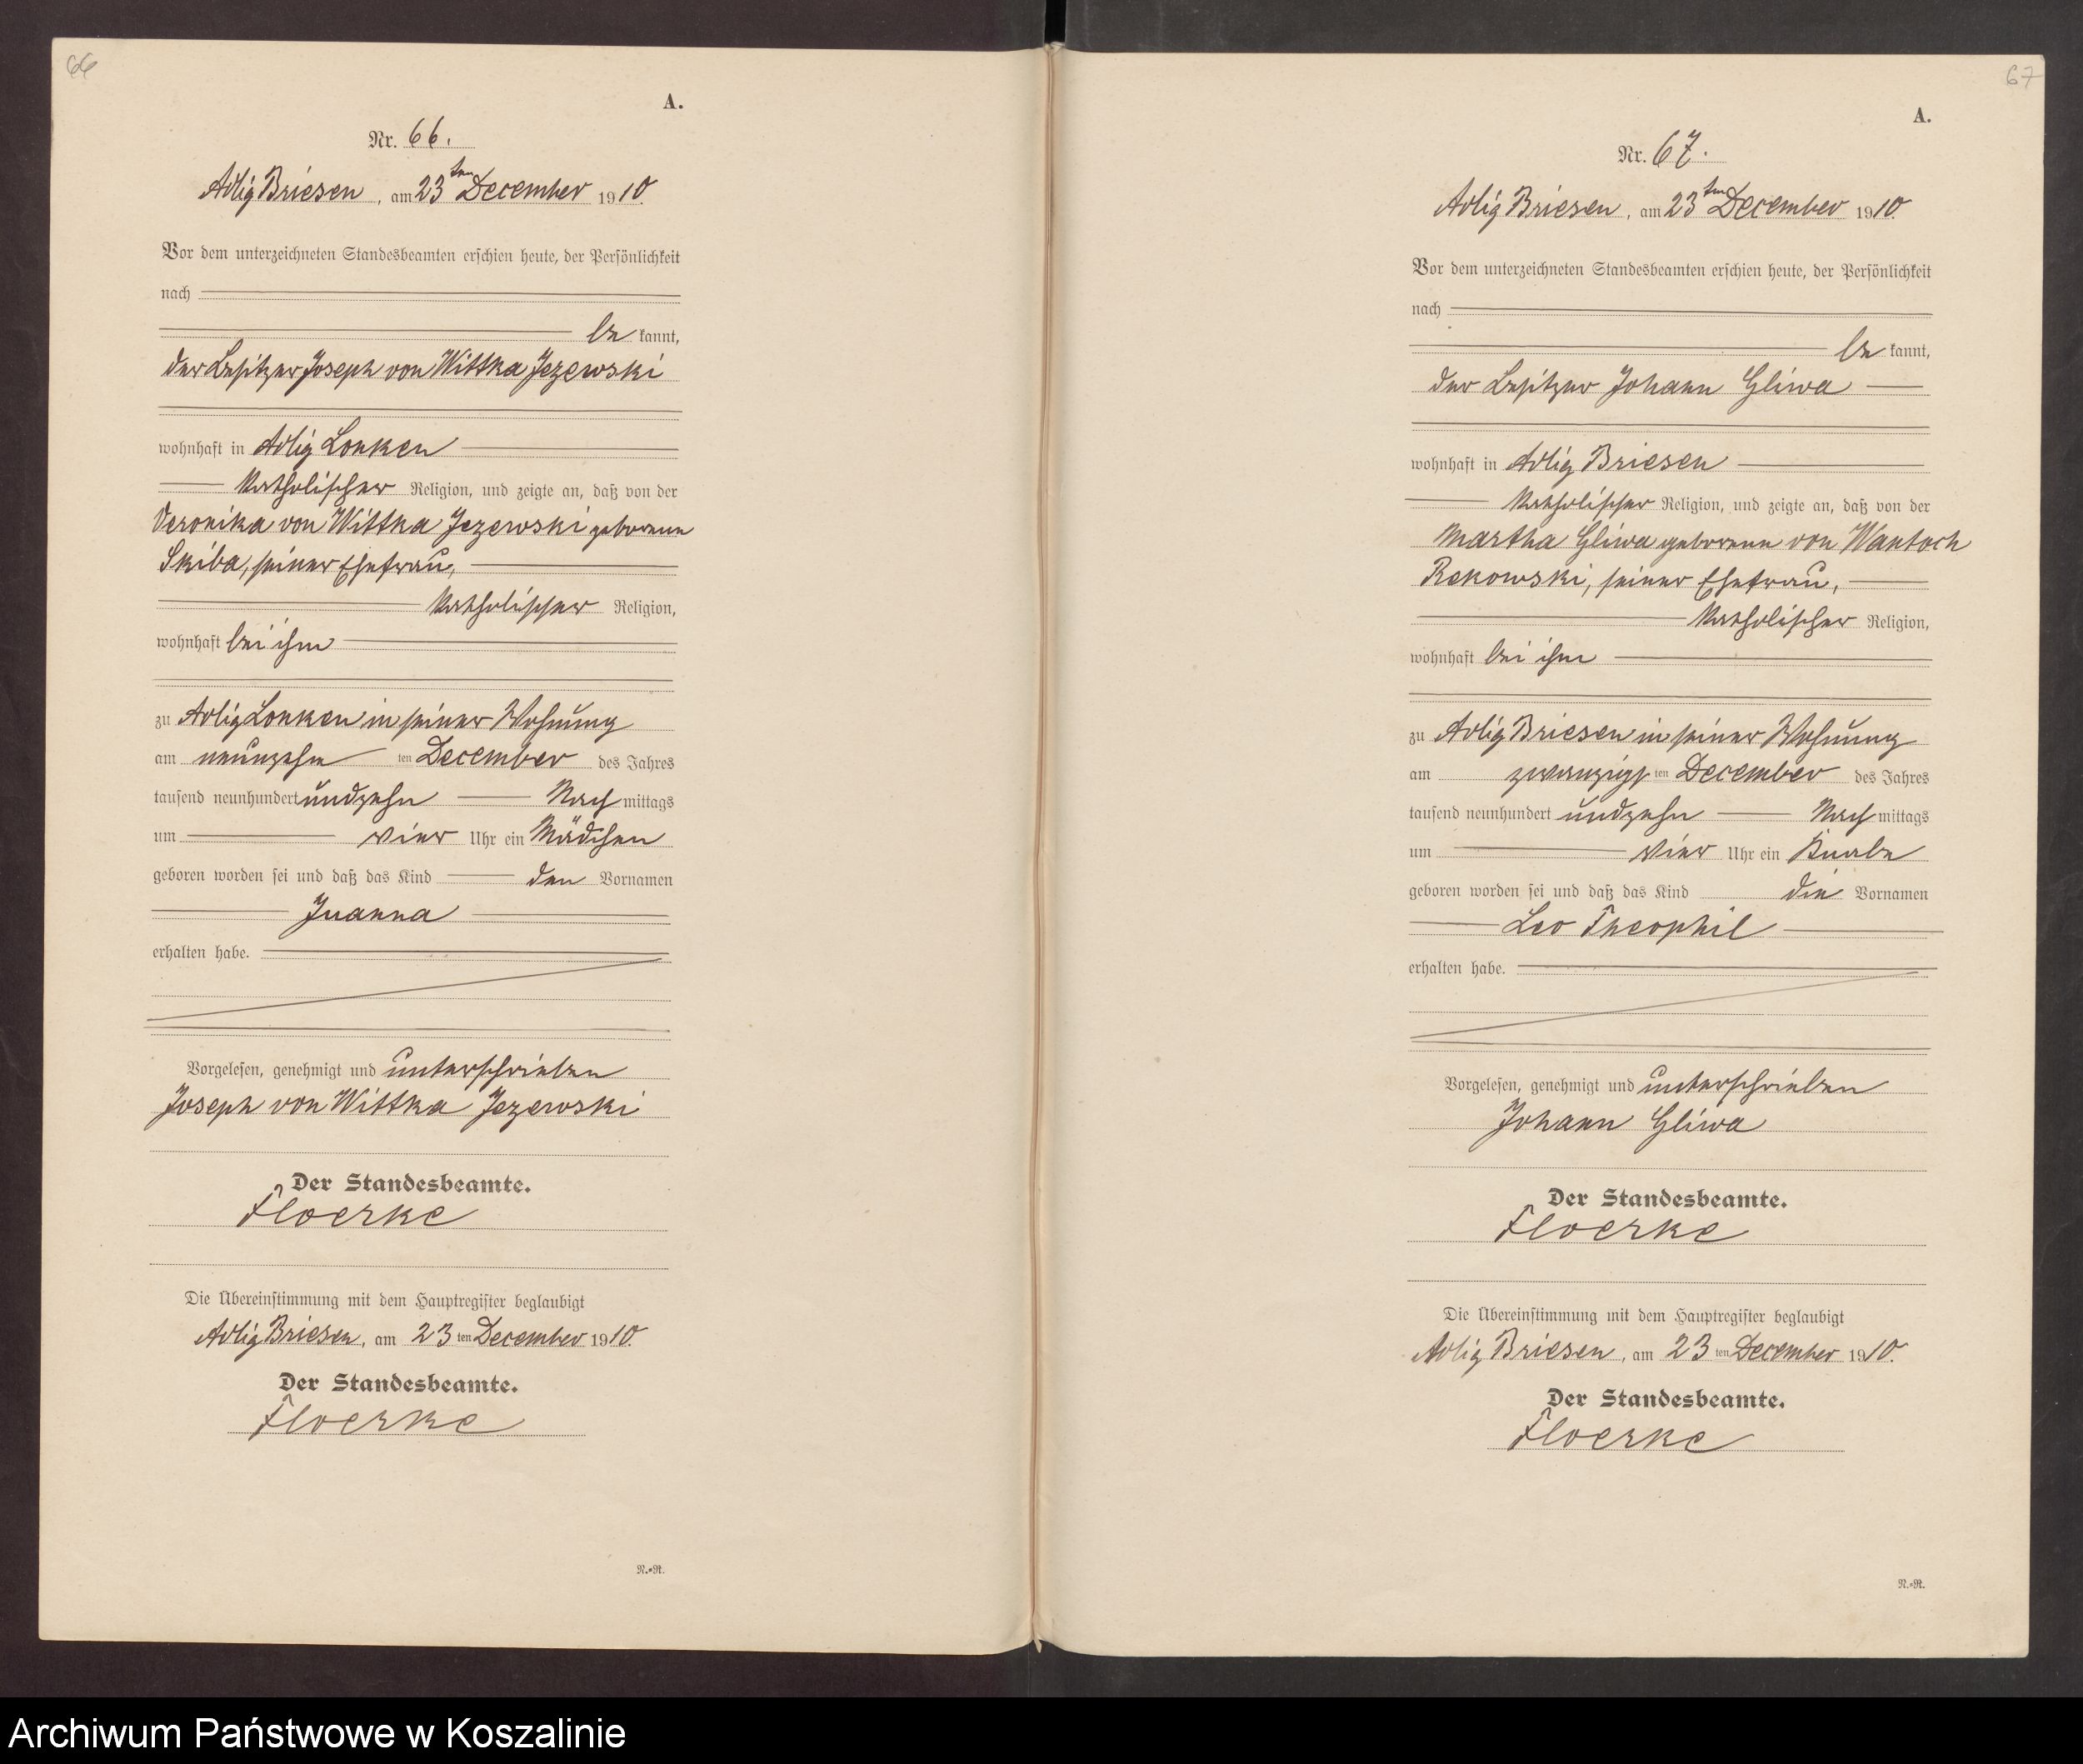 66
A.
Nr. 66.
Adlig Briesen, am 23ten December 1910.
Vor dem unterzeichneten Standesbeamten erschien heute, der Persönlichkeit
nach
be kannt,
der Besitzer Joseph von Wittka Jezewski
wohnhaft in Adlig Lonken
katholischer Religion, und zeigte an, daß von der
Veronika von Wittka Jezewski geborenen
Skiba, seiner Ehefrau,
katholischer Religion,
wohnhaft bei ihm
zu Adlig Lonken in seiner Wohnung
am neunzehn ten December des Jahres
tausend neunhundert und zehn Nach mittags
um vier Uhr ein Mädchen
geboren worden sei und daß das Kind den Vornamen
Juanna
erhalten habe.
Vorgelesen, genehmigt und unterschrieben
Joseph von Wittka Jezewski
Der Standesbeamte.
Floerke
Die Übereinstimmung mit dem Hauptregister beglaubigt
Adlig Briesen, am 23 ten December 1910.
Der Standesbeamte.
Floerke
N.=R.
67
A.
Nr. 67.
Adlig Briesen, am 23ten December 1910.
Vor dem unterzeichneten Standesbeamten erschien heute, der Persönlichkeit
nach
be kannt,
der Besitzer Johann Gliwa
wohnhaft in Adlig Briesen
katholischer Religion, und zeigte an, daß von der
Martha Gliwa geborenen von Wantoch
Rekowski, seiner Ehefrau,
katholischer Religion,
wohnhaft bei ihm
zu Adlig Briesen in seiner Wohnung
am zwanzigs ten December des Jahres
tausend neunhundert und zehn Nach mittags
um vier Uhr ein Knabe
geboren worden sei und daß das Kind die Vornamen
Leo Theophil
erhalten habe.
Vorgelesen, genehmigt und unterschrieben
Johann Gliwa
Der Standesbeamte.
Floerke
Die Übereinstimmung mit dem Hauptregister beglaubigt
Adlig Briesen, am 23 ten December 1910.
Der Standesbeamte.
Floerke
N.=R.
Archiwum Państwowe w Koszalinie